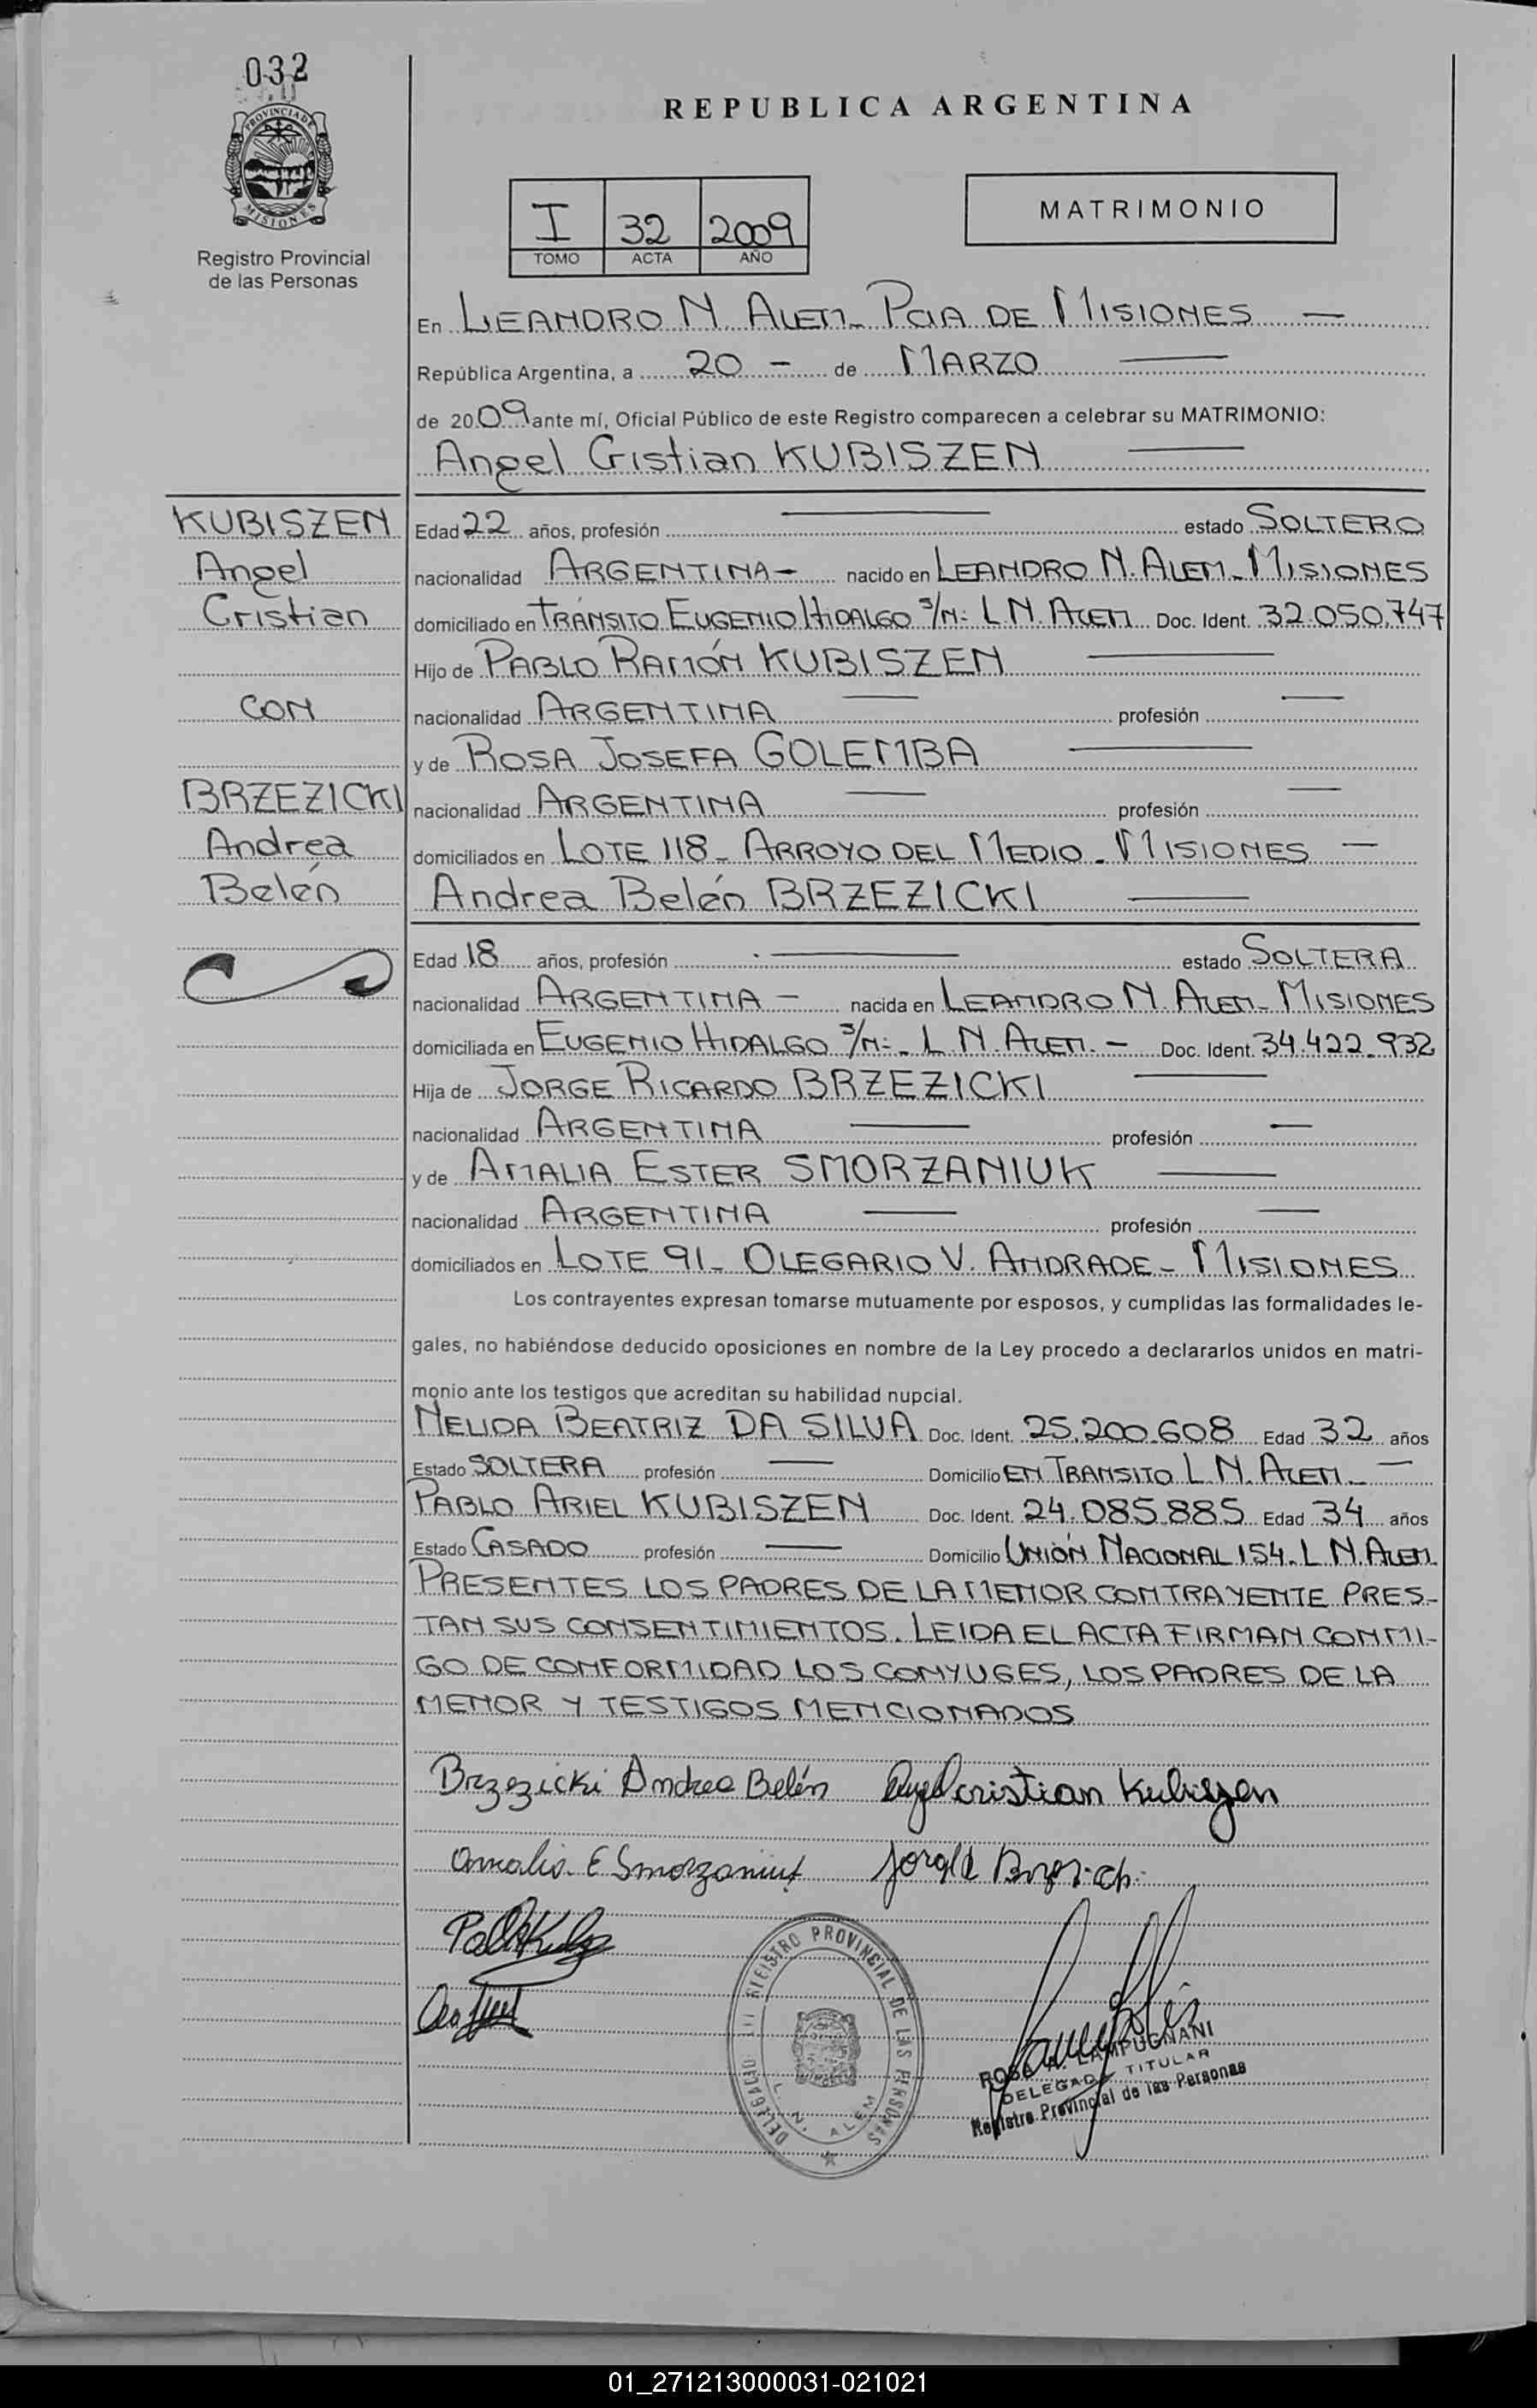 032
PROVINCIA DE MISIONES
Registro Provincial
de las Personas
REPUBLICA ARGENTINA
I 32 2009
TOMO ACTA AÑO
MATRIMONIO
En LEANDRO N. ALEM - PCIA DE MISIONES —
República Argentina, a 20 - de MARZO —
de 2009 ante mí, Oficial Público de este Registro comparecen a celebrar su MATRIMONIO:
Angel Cristian KUBISZEN —
KUBISZEN
Angel
Cristian
CON
BRZEZICKI
Andrea
Belén
Edad 22 años, profesión — estado SOLTERO
nacionalidad ARGENTINA - nacido en LEANDRO N. ALEM - MISIONES
domiciliado en TRÁNSITO EUGENIO HIDALGO S/N: L.N. ALEM Doc. Ident. 32.050.747
Hijo de PABLO RAMÓN KUBISZEN —
nacionalidad ARGENTINA — profesión —
y de ROSA JOSEFA GOLEMBA —
nacionalidad ARGENTINA — profesión —
domiciliados en LOTE 118 - ARROYO DEL MEDIO - MISIONES —
Andrea Belén BRZEZICKI —
Edad 18 años, profesión — estado SOLTERA
nacionalidad ARGENTINA - nacida en LEANDRO N. ALEM - MISIONES
domiciliada en EUGENIO HIDALGO S/N: - L.N. ALEM. - Doc. Ident. 34.422.932
Hija de JORGE RICARDO BRZEZICKI —
nacionalidad ARGENTINA — profesión —
y de AMALIA ESTER SMORZANIUK —
nacionalidad ARGENTINA — profesión —
domiciliados en LOTE 91 - OLEGARIO V. ANDRADE - MISIONES
Los contrayentes expresan tomarse mutuamente por esposos, y cumplidas las formalidades le-
gales, no habiéndose deducido oposiciones en nombre de la Ley procedo a declararlos unidos en matri-
monio ante los testigos que acreditan su habilidad nupcial.
NELIDA BEATRIZ DA SILVA Doc. Ident. 25.200.608 Edad 32 años
Estado SOLTERA profesión — Domicilio EN TRANSITO L.N. ALEM —
PABLO ARIEL KUBISZEN Doc. Ident. 24.085.885 Edad 34 años
Estado CASADO profesión — Domicilio UNIÓN NACIONAL 154. L.N. ALEM
PRESENTES LOS PADRES DE LA MENOR CONTRAYENTE PRES-
TAN SUS CONSENTIMIENTOS. LEIDA EL ACTA FIRMAN CONMI-
GO DE CONFORMIDAD LOS CONYUGES, LOS PADRES DE LA
MENOR Y TESTIGOS MENCIONADOS
Brzezicki Andrea Belén Angel cristian Kubiszen
Amalia E Smorzaniuk Jorge
REGISTRO PROVINCIAL DE LAS PERSONAS
DELEGACIO
L. N. ALEM
LAMPUGNANI
DELEGADA TITULAR
Registro Provincial de las Personas
01_271213000031-021021